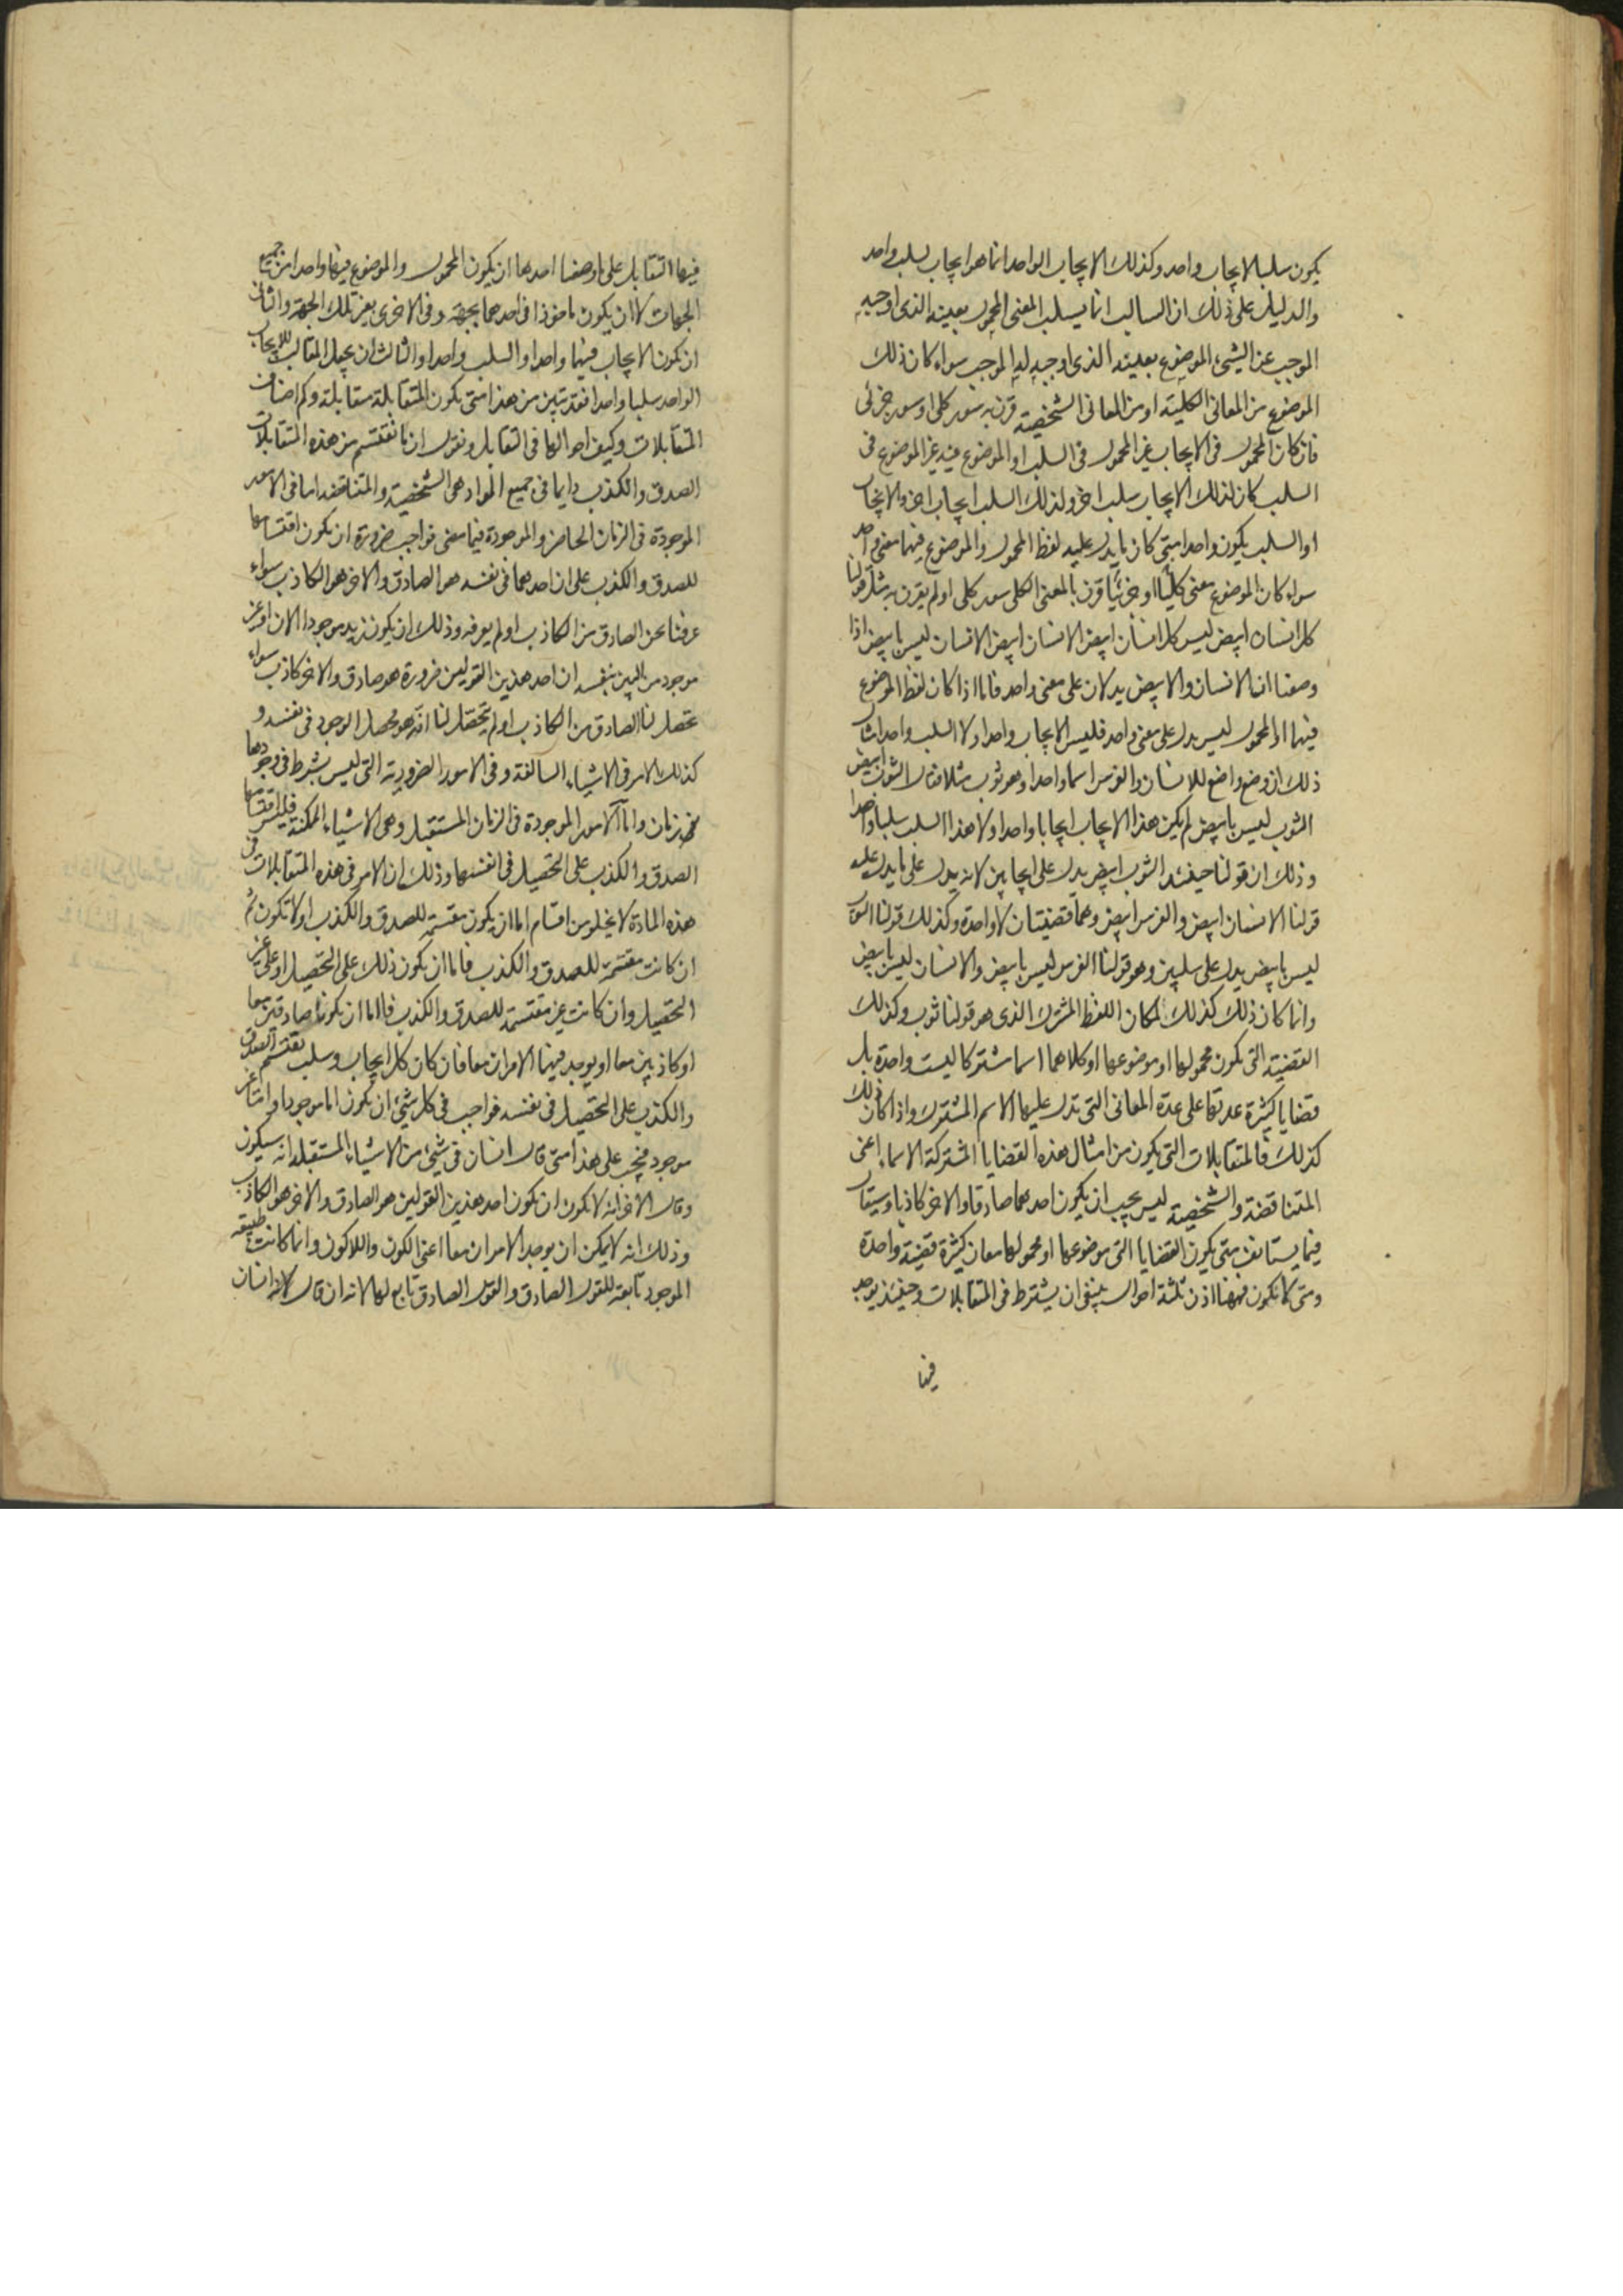 يكون سلب الايجاب واحد وكذلك الايجاب الواحد انما هو ايجاب لسلب واحد
والدليل على ذلك ان السالب انما يسلب المعنى المحمول بعينه الذى اوجبه
الموجب عن الشىء الموضوع بعينه الذى اوجبه له الموجب سواء كان ذلك
الموضوع من المعانى الكلية او من المعانى الشخصية قرن به سور كلى او سور جزئى
فان كان المحمول فى الايجاب غير المحمول فى السلب او الموضوع فيه غير الموضوع فى
السلب كان لذلك الايجاب سلب اخر ولذلك السلب ايجاب اخر والايجاب
او السلب يكون واحدا متى كان ما يدل عليه لفظ المحمول والموضوع فيهما معنى واحد
سواء كان الموضوع معنى كليا او جزئيا قرن بالمعنى الكلى سور كلى او لم يقرن به مثل قولنا
كل انسان ابيض ليس كل انسان ابيض الانسان ابيض الانسان ليس بابيض اذا
وصفنا ان الانسان والابيض يدلان على معنى واحد فاما اذا كان لفظ الموضوع
فيهما او المحمول ليس يدل على معنى واحد فليس الايجاب واحدا ولا السلب واحد امثال
ذلك ان وضع واضع للانسان والفرس اسما واحدا وهو ثوب مثلا فقال الثوب ابيض
الثوب ليس بابيض لم يكن هذا الايجاب ايجابا واحدا ولا هذا السلب سلبا واحدا
وذلك ان قولنا حينئذ الثوب ابيض يدل على ايجابين لانه يدل على ما يدل عليه
قولنا الانسان ابيض والفرس ابيض وهما قضيتان لا واحدة وكذلك قولنا الثوب
ليس بابيض يدل على سلبين وهو قولنا الفرس ليس بابيض والانسان ليس بابيض
وانما كان ذلك كذلك لمكان اللفظ المشترك الذى هو قولنا ثوب وكذلك
القضية التى يكون محمولها او موضوعها او كلاهما اسما مشتركا ليست واحدة بل
قضايا كثيرة عدتها على عدة المعانى التى تدل عليها الاسم المشترك واذا كان ذلك
كذلك فالمتقابلات التى يكون من امثال هذه القضايا المشتركة الاسماء اعنى
المتناقضة والشخصية ليس يجب ان يكون احدهما صادقا والاخر كاذبا وسيقال
فيما يستانف متى يكون القضايا التى موضوعها او محمولها معان كثيرة قضية واحدة
ومتى لا يكون فههنا اذن ثلثة احوال ينبغى ان يشترط فى المتقابلات وحينئذ يوجد
فيها
فيها التقابل على ما وصفنا احدها ان يكون المحمول والموضوع فيها واحدا من جميع
الجهات لا ان يكون ماخوذا فى احدهما بجهة وفى الاخرى بغير تلك الجهة والثانى
ان يكون الايجاب فيها واحدا والسلب واحدا والثالث ان يجعل المقابل للايجاب
الواحد سلبا واحدا فقد تبين من هذا متى يكون المتقابلة متقابلة وكم اصناف
المتقابلات وكيف احوالها فى التقابل ونقول ان ما تقتسم من هذه المتقابلات
الصدق والكذب دايما فى جميع المواد هى الشخصية والمتناقضة اما فى الامور
الموجودة فى الزمان الحاضر والموجودة فيما مضى فواجب ضرورة ان يكون اقتسامها
للصدق والكذب على ان احدهما فى نفسه هو الصادق والاخر هو الكاذب سواء
عرفنا نحن الصادق من الكاذب او لم يعرفه وذلك ان يكون زيد موجودا الان او غير
موجود من البين بنفسه ان احد هذين القولين ضرورة هو صادق والاخر كاذب سواء
تحصل لنا الصادق من الكاذب او لم يتحصل لنا اذ هو محصل الوجود فى نفسه و
كذلك الامر فى الاشياء السالفة وفى الامور الضرورية التى ليس بشرط فى وجودها
زمان واما الامور الموجودة فى الزمان المستقبل وهى الاشياء الممكنة فليس اقتسامها
الصدق والكذب على التحصيل فى انفسها وذلك ان الامر فى هذه المتقابلات فى
هذه المادة لا يخلو من اقسام اما ان يكون مقتسمة للصدق والكذب او لا تكون ثم
ان كانت مقتسمة للصدق والكذب فاما ان يكون ذلك على التحصيل او على غير
التحصيل وان كانت غير مقتسمة للصدق والكذب فاما ان يكونا صادقين معا
او كاذبين معا او يوجد فيهما الامران معا فان كان كل ايجاب وسلب تقتسم الصدق
والكذب على التحصيل فى نفسه فواجب فى كل شىء ان يكون اما موجودا واما غير
موجود فيجب على هذا متى قال انسان فى شىء من الاشياء المستقبلة انه سيكون
وقال الاخر انه لا يكون ان يكون احد هذين القولين هو الصادق والاخر هو الكاذب
وذلك انه لا يمكن ان يوجد الامران معا اعنى الكون واللاكون وانما كانت طبيعة
الموجود تابعة للقول الصادق والقول الصادق تابع لها لانه ان قال لانه انسان